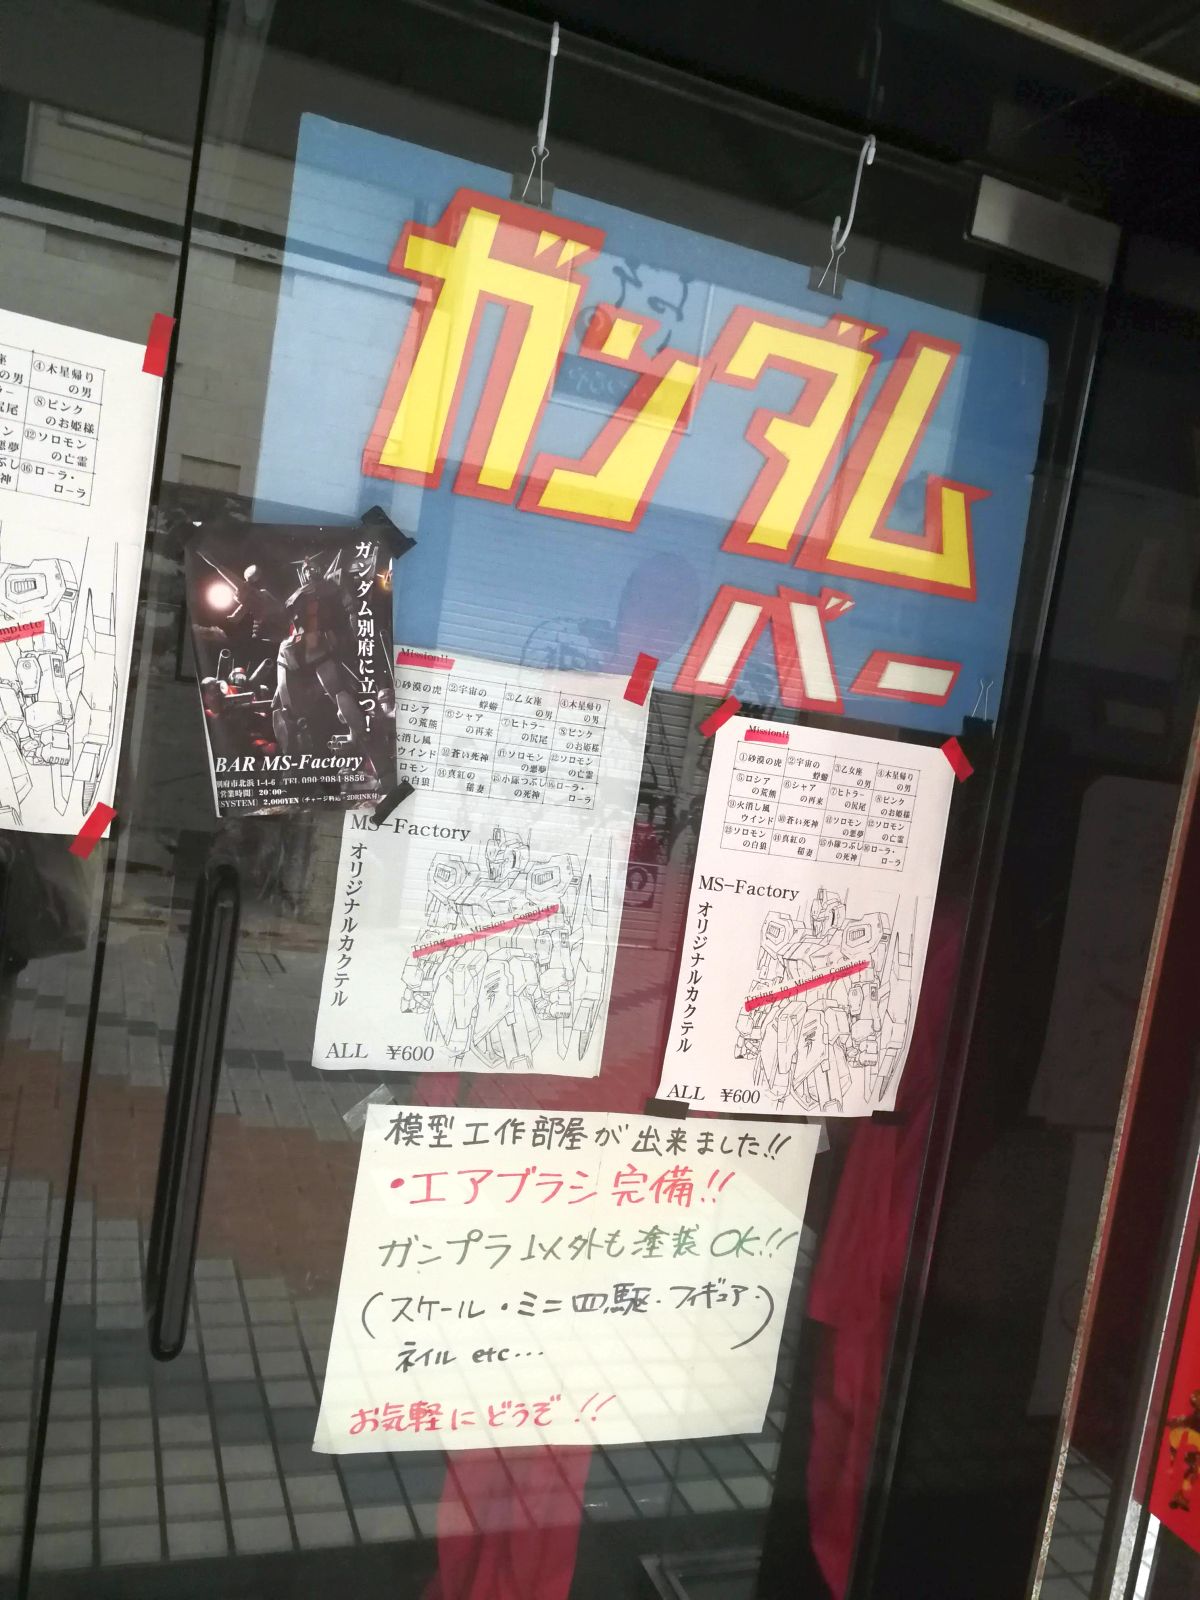 ガンダム
バー
ガンダム別府に立つ!
BAR MS-Factory
別府市北浜 1-4-6 TEL 090-2084-8856
営業時間 20:00~
[SYSTEM] 2,000YEN (チャージ料込・2DRINK付)
④木星帰り
の男
⑧ピンク
のお姫様
⑫ソロモン
の亡霊
⑯ローラ・
ローラ
Mission!!
①砂漠の虎 ②宇宙の
蜉蝣 ③乙女座
の男 ④木星帰り
の男
ロシア
の荒熊 ⑥シャア
の再来 ⑦ヒトラー
の尻尾 ⑧ピンク
のお姫様
火消し風
ウインド ⑩蒼い死神 ⑪ソロモン
の悪夢 ⑫ソロモン
の亡霊
ロモン
の白狼 ⑭真紅の
稲妻 ⑮小隊つぶし
の死神 ⑯ローラ・
ローラ
MS-Factory
オリジナルカクテル
Trying to Mission Complete
ALL ¥600
Mission!!
①砂漠の虎 ②宇宙の
蜉蝣 ③乙女座
の男 ④木星帰り
の男
⑤ロシア
の荒熊 ⑥シャア
の再来 ⑦ヒトラー
の尻尾 ⑧ピンク
のお姫様
⑨火消し風
ウインド ⑩蒼い死神 ⑪ソロモン
の悪夢 ⑫ソロモン
の亡霊
⑬ソロモン
の白狼 ⑭真紅の
稲妻 ⑮小隊つぶし
の死神 ⑯ローラ・
ローラ
MS-Factory
オリジナルカクテル
Trying to Mission Complete
ALL ¥600
模型工作部屋が出来ました!!
・エアブラシ完備!!
ガンプラ以外も塗装OK!!
(スケール・ミニ四駆・フィギュア・
ネイル etc…)
お気軽にどうぞ!!